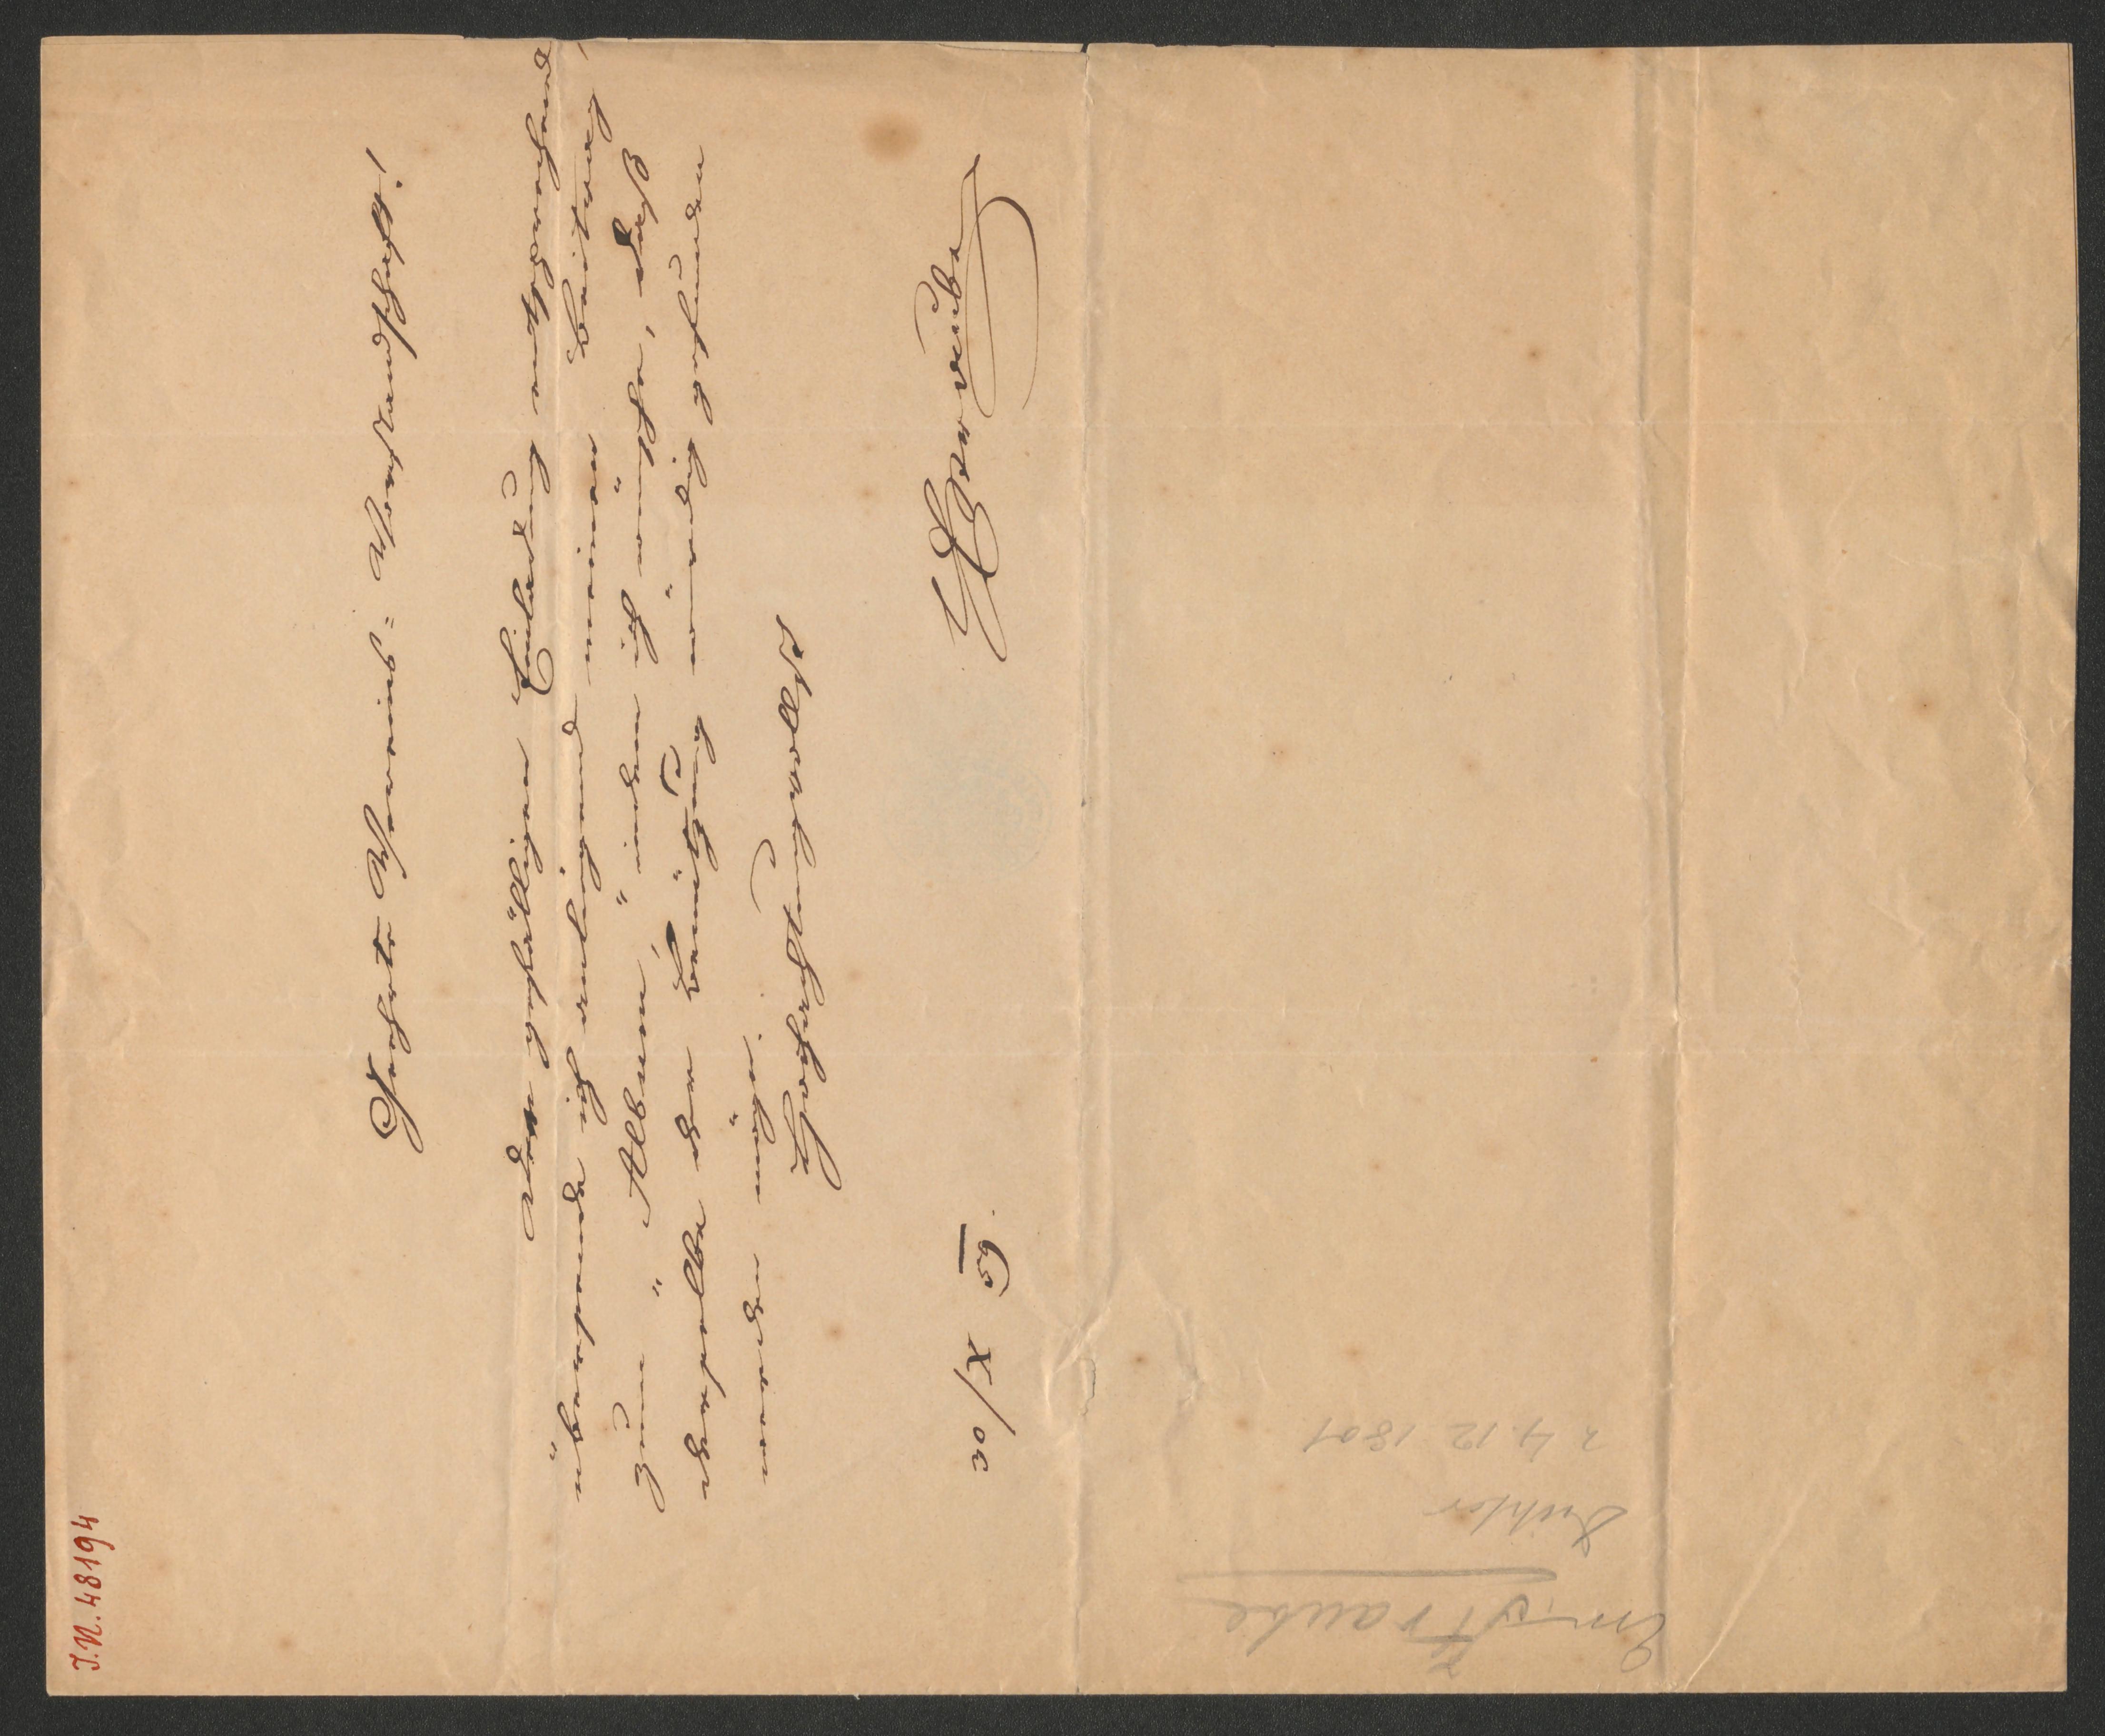 J.N. 48194
Geehrte Vereins-Vorstandschaft!
Der gefälligen Einladung entsprechend
übersende ich anliegend meinen Beitrag
zum "Album", indem ich wünsche, daß
derselbe der Benützung würdig gefunden
werden möge.
Hochachtungsvollst
EStraube
30/X 59.
Em. Straube
Dichter
4.12.1801